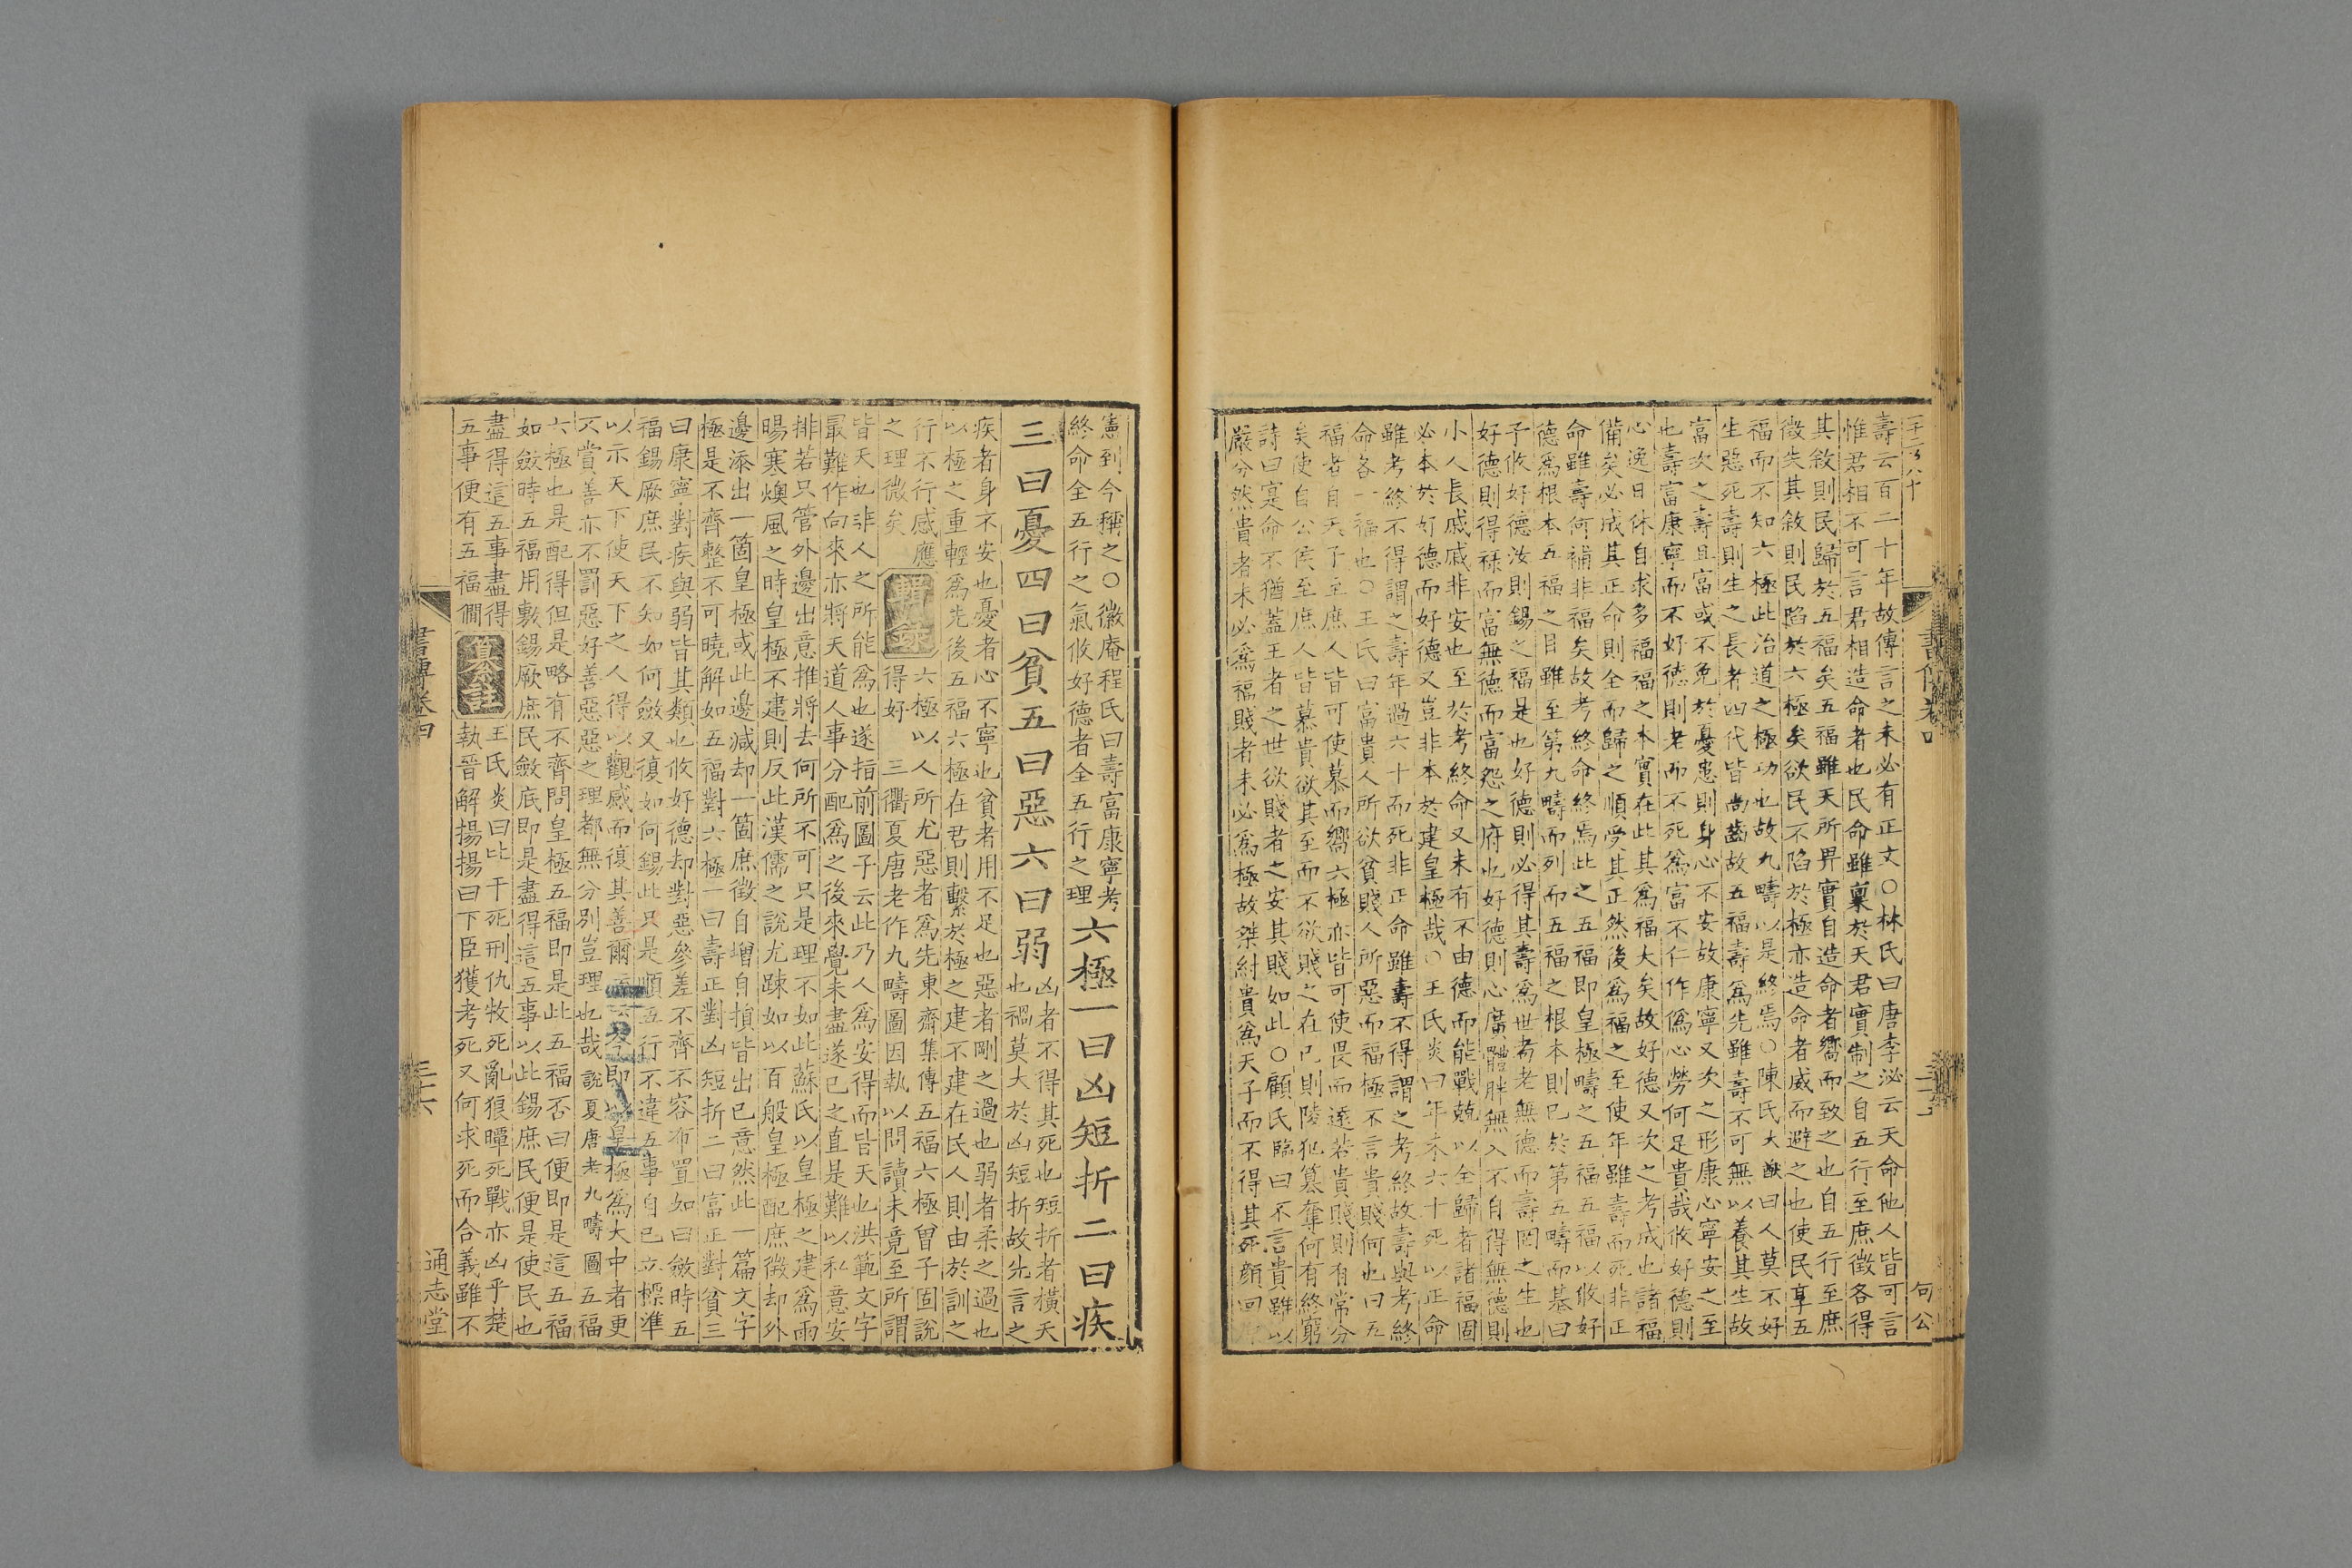 壽云百二十年故傳言之未必有正文○林氏曰唐李泌云天命他人皆可言
惟君相不可言君相造命者也民命雖稟於天君實制之自五行至庶徵各得
其敘則民歸於五福矣五福雖天所畀實自造命者嚮而致之也自五行至庶
徵失其敘則民陷於六極矣欲民不陷於極亦造命者威而避之也使民享五
福而不知六極此治道之極功也故九疇以是終焉○陳氏大猷曰人莫不好
生惡死壽則生之長者四代皆尚齒故五福壽爲先雖壽不可無以養其生故
富次之壽且富或不免於憂患則身心不安故康寧又次之形康心寧安之至
也壽富康寧而不好德則老而不死爲富不仁作僞心勞何足貴哉攸好德則
心逸日休自求多福福之本實在此其爲福大矣故好德又次之考成也諸福
備矣必成其正命則全而歸之順受其正然後爲福之至使年雖壽而死非正
命雖壽何補非福矣故考終命終焉此之五福即皇極疇之五福五福以攸好
德爲根本五福之目雖至第九疇而列而五福之根本則已於第五疇而基曰
予攸好德汝則錫之福是也好德則必得其壽爲世耇老無德而壽罔之生也
好德則得祿而富無德而富怨之府也好德則心廣體胖無入不自得無德則
小人長戚戚非安也至於考終命又未有不由德而能戰兢以全歸者諸福固
必本於好德而好德又豈非本於建皇極哉○王氏炎曰年未六十死以正命
雖考終不得謂之壽年過六十而死非正命雖壽不得謂之考終故壽與考終
命各一福也○王氏曰富貴人所欲貧賤人所惡而福極不言貴賤何也曰五
福者自天子至庶人皆可使慕而嚮六極亦皆可使畏而遠若貴賤則有常分
矣使自公侯至庶人皆慕貴欲其至而不欲賤之在己則陵犯簒奪何有終窮
詩曰寔命不猶蓋王者之世欲賤者之安其賤如此○顧氏臨曰不言貴雖以
嚴分然貴者未必爲福賤者未必爲極故桀紂貴爲天子而不得其死顏回
句公
憲到今稱之○徽庵程氏曰壽富康寧考
終命全五行之氣攸好德者全五行之理
六極一曰凶短折二曰疾
三曰憂四曰貧五曰惡六曰弱
凶者不得其死也短折者橫夭
也禍莫大於凶短折故先言之
疾者身不安也憂者心不寧也貧者用不足也惡者剛之過也弱者柔之過也
以極之重輕爲先後五福六極在君則繫於極之建不建在民人則由於訓之
行不行感應
之理微矣
輯錄
六極以人所尤惡者爲先東齋集傳五福六極曾子固說
得好 三衢夏唐老作九疇圖因執以問讀未竟至所謂
皆天也非人之所能爲也遂指前圖子云此乃人爲安得而皆天也洪範文字
最難作向來亦將天道人事分配爲之後來覺未盡遂已之直是難以私意安
排若只管外邊出意推將去何所不可只是理不如此蘇氏以皇極之建爲雨
暘寒燠風之時皇極不建則反此漢儒之說尤踈如以百般皇極配庶徵却外
邊添出一箇皇極或此邊減却一箇庶徵自增自損皆出已意然此一篇文字
極是不齊整不可曉解如五福對六極一曰壽正對凶短折二曰富正對貧三
曰康寧對疾與弱皆其類也攸好德却對惡參差不齊不容布置如曰斂時五
福錫厥庶民不知如何斂又復如何錫此只是順五行不違五事自已立標準
以示天下使天下之人得以觀感而復其善爾 即以皇極爲大中者更
不賞善亦不罰惡好善惡惡之理都無分別豈理也哉說夏唐老九疇圖 五福
六極也是配得但是略有不齊問皇極五福即是此五福否曰便即是這五福
如斂時五福用敷錫厥庶民斂底即是盡得這五事以此錫庶民便是使民也
盡得這五事盡得
五事便有五福僩
纂註
王氏炎曰比干死刑仇牧死亂狼瞫死戰亦凶乎楚
執晉解揚揚曰下臣獲考死又何求死而合義雖不
書傳卷四
通志堂